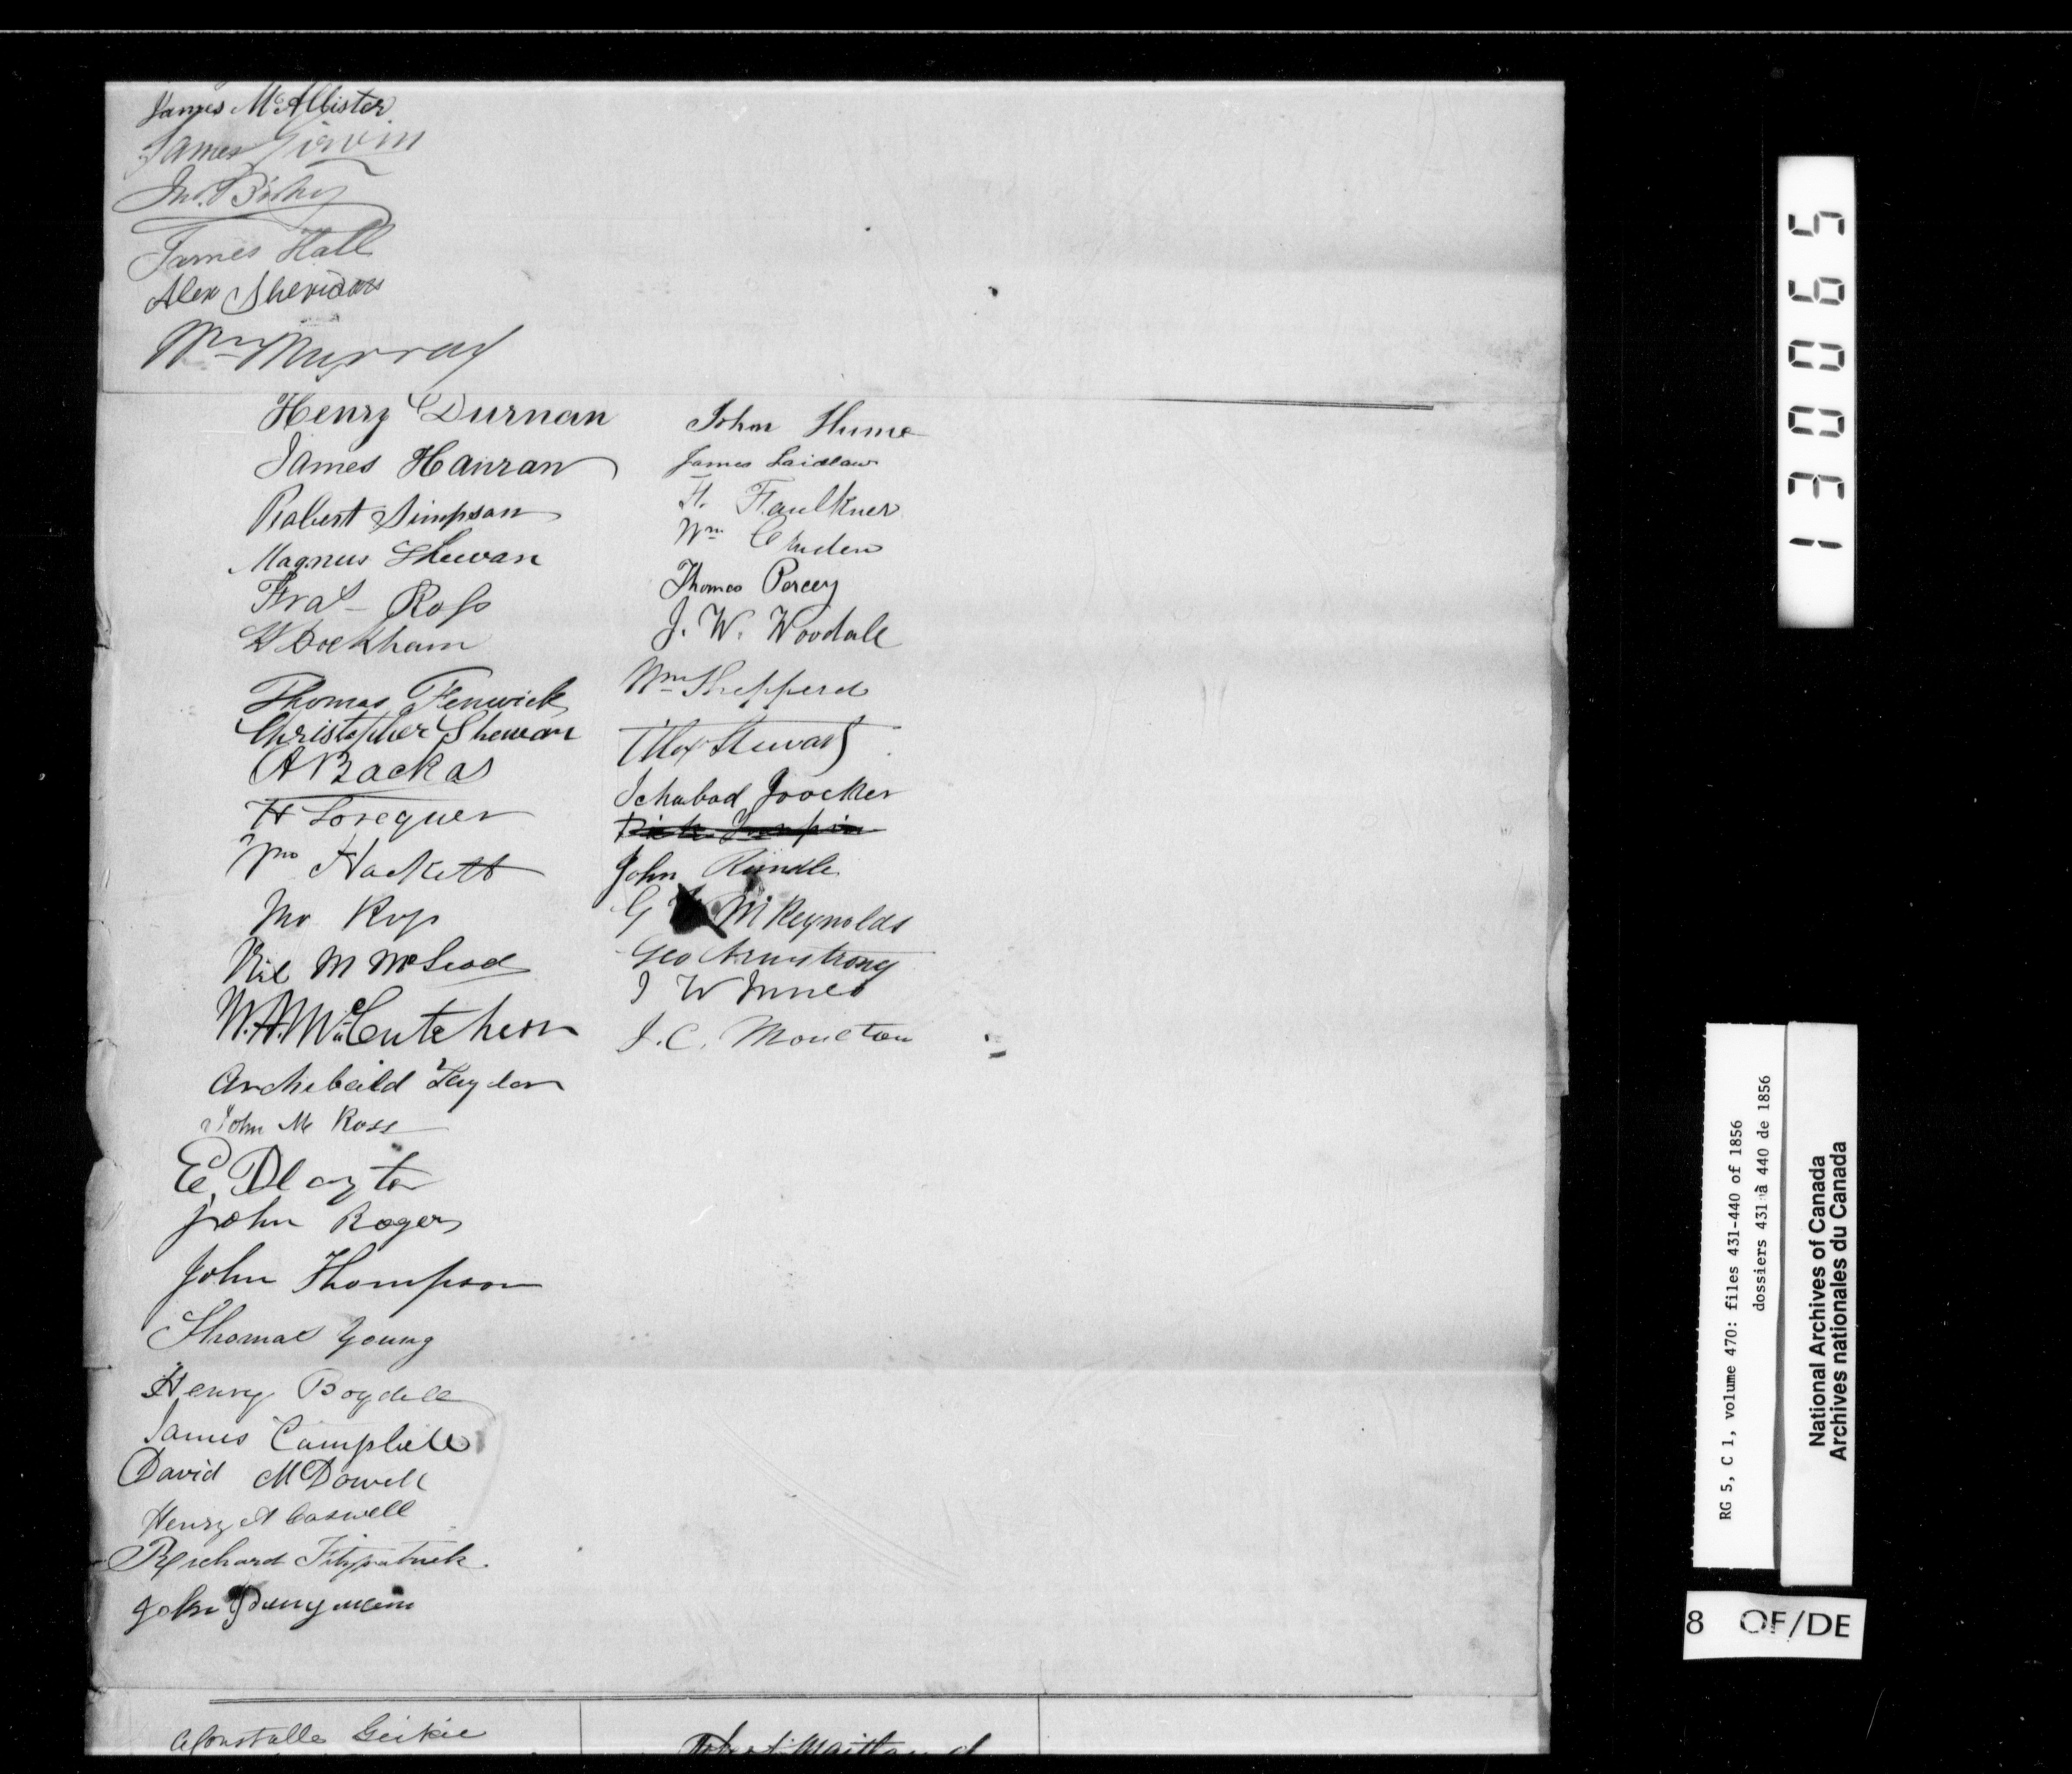 James McAllister
James Girvin
Jno. Bishop
James Hall
Alex Sheridan
Wm Murray
Henry Durnan
James Hanran
Robert Simpson
Magnus Shewan
Fras Ross
Thomas Fenwick
Christopher Shewan
A Backas
H Lorequer
Hackett
Jno Ross
McLeod
W. A. McCutcheon
Archibald Taylor
John Mc Ross
E,
John Rogers
John Thompson
Thomas Young
Henry Boydell
James Campbell
David McDowell
Henry A Caswell
Richard Fitzpatrick
John
John Hume
James Laidlaw
H. Faulkner
Wm
Thomas Percey
J. W. Woodall
Wm Shepperd
Alex Stewart
Ichabod
Dick Turpin
John Rundle
G M Reynolds
Geo Armstrong
J W Innes
J. C. Moulton
A Constable Geikie
Robert Maitland
130065
RG 5, C 1, volume 470: files 431-440 of 1856
dossiers 431 à 440 de 1856
National Archives of Canada
Archives nationales du Canada
8 OF/DE